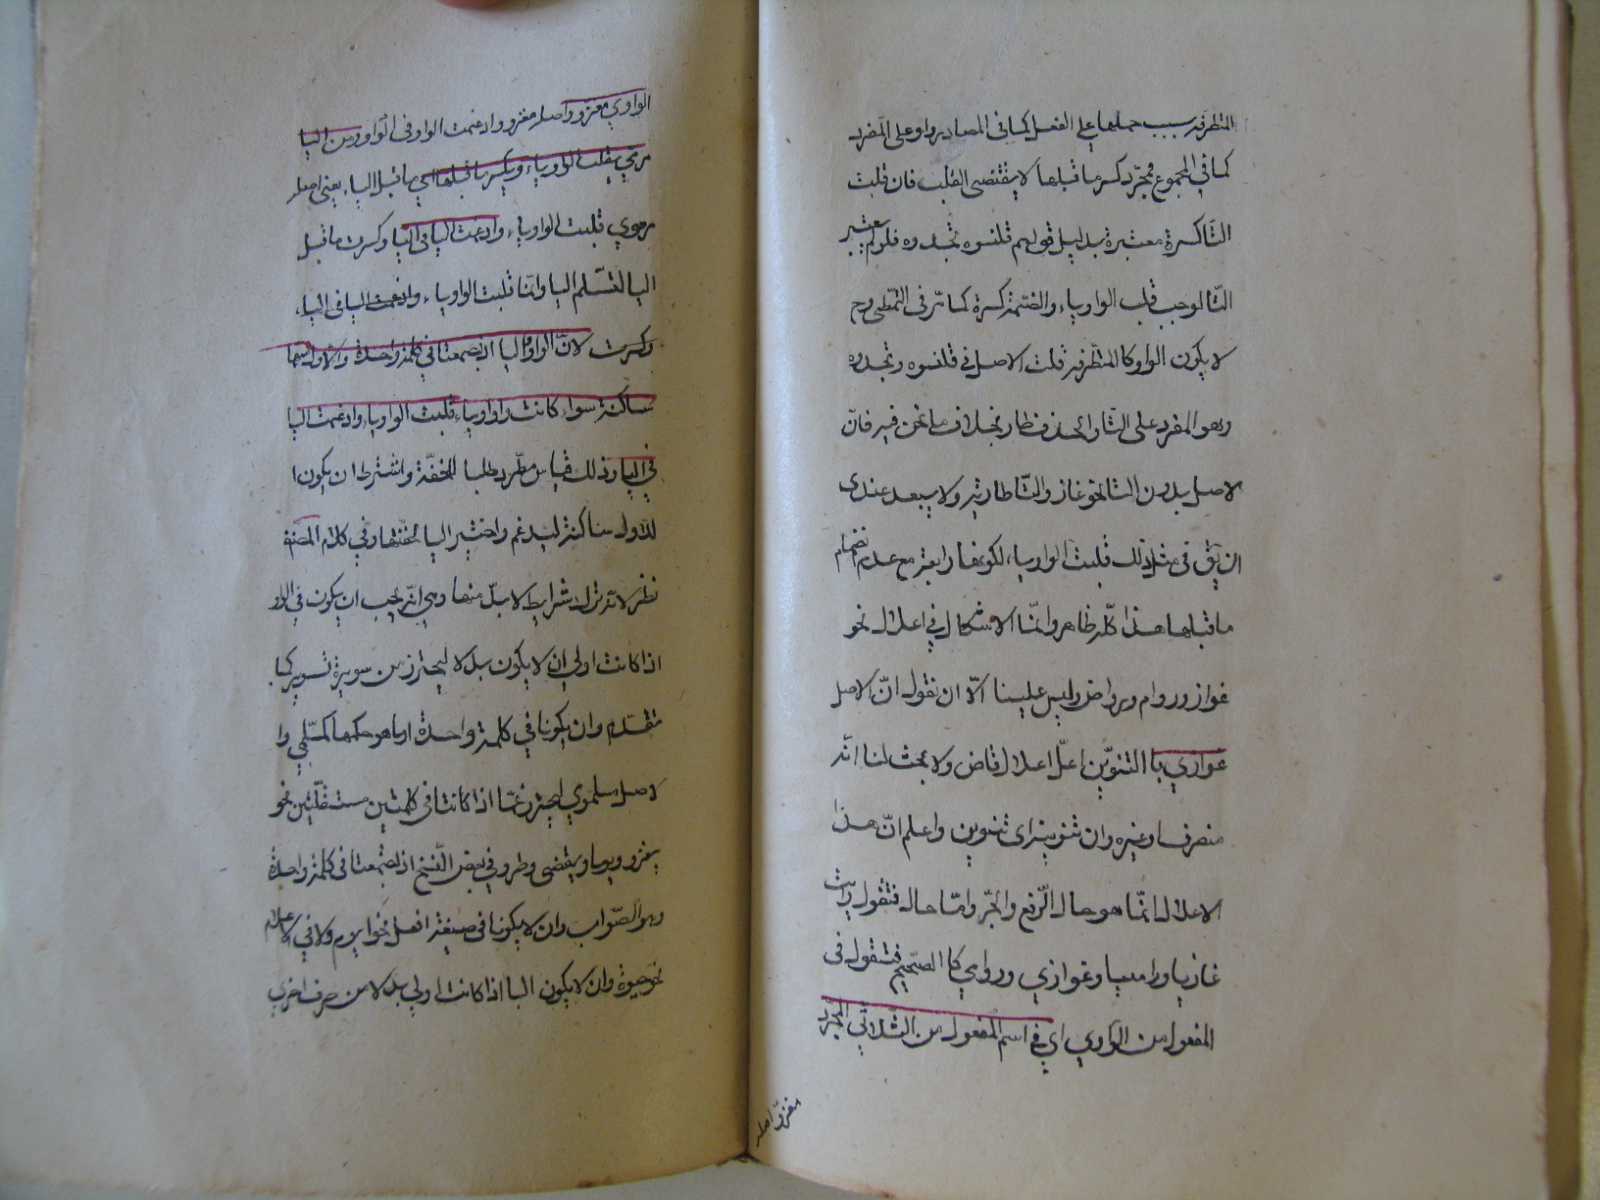 المتطرفة بسبب حملها على الفعل كما في المصادر او على المفرد
كما في المجموع فمجرد كسر ما قبلها لا يقتضي القلب فان قلت
التاكسرة معتبرة بدليل قولهم قلنسوه وقمحدوه فلو لم يعتبر
التا لوجب قلب الواو ياء والضمة كسرة كما مر في التمطي وح
لا يكون الواو كالمتطرفة قلت الاصل في قلنسوه وقمحدوه
وهو المفرد على التا والحذف طار بخلاف ما نحن فيه فان
الاصل بدون التا نحو غاز والتا طارية ولا يبعد عندى
ان يق في مثل ذلك قلبت الواو ياء لكونها رابعة مع عدم انضمام
ما قبلها هذا كله ظاهر وانما الاشكال في اعلال نحو
غواز وروام ورواض وليس علينا الا ان نقول ان الاصل
غوازي با التنوين اعل اعلال قاض ولا بحث لنا انه
منصرف او غيره وان تنوينه اى تنوين واعلم ان هذا
الاعلال انما هو حال الرفع والجر واما حال فتقول رايت
غازيا وراميا وغوازي وروامي كا الصحيح فتقول فى
المفعول من الواوي اي في اسم المفعول من الثلاثي المجرد
مغزو اصله
الواوي مغزو واصله مغزوو ادغمت الواو فى الواو ومن اليا
مرمي بقلب الواو ياء ويكسر ما قبلها اي ما قبل الياء يعنى اصله
مرموي قلبت الواو ياء وادغمت اليا فى اليا وكسرت ما قبل
اليا لتسلم اليا وانما قلبت الواو ياء وادغمت اليا فى الياء
وكسرت لان الواو واليا اذا اجتمعتا في كلمة واحدة والاولى منهما
ساكنة سواء كانت واو او ياء قلبت الواو ياء وادغمت اليا
في اليا وذلك قياس مطرد طلبا للخفة واشترط ان يكون ا
الاول ساكنة ليدغم واختير اليا لخفتها وفي كلام المصنف
نظر لانه ترك شرايط لا بد منها وهي انه يجب ان يكون في الواو
اذا كانت اولي ان لا يكون بدلا ليحترز من سوير وتسوير كما
تقدم وان يكونا في كلمة واحدة او ما هو حكمها كمسلمي وا
لاصل مسلموي احترز عما اذا كانتا في كلمتين مستقلتين نحو
يغزو يوما ويقضى وطرو في بعض النسخ اذا اجتمعتا فى كلمة واحدة
وهو الصواب وان لا يكونا فى صيغة افعل نحو ايوم ولا في الاعلام
نحو حيوة وان لا يكون اليا اذا كانت اولي بدلا من حرف اخري